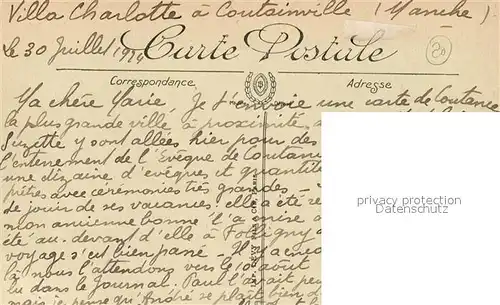 Villa Charlotte à Coutainville (Manche)
Le 30 Juillet
Carte Postale
20
Correspondance
Adresse
Ma chère Marie. Je t'envoie une carte de Coutances
la plus grande ville à proximité.
Suzette y sont allées hier pour des
l'enterrement de l'Evêque de Coutances
une dizaine d'evêques et quantité
prêtres avec cérémonies très grandes -
de jour de ses vacances. elle a été se
mon ancienne bonne l'a mise a
été au-devant d'elle à Folligny
voyage s'est bien passé - Il y a
nous l'attendons vers le 10 août
lu dans le journal. Paul l'avait peu
mais je pense qu'André se plait bien
privacy protection
Datenschutz